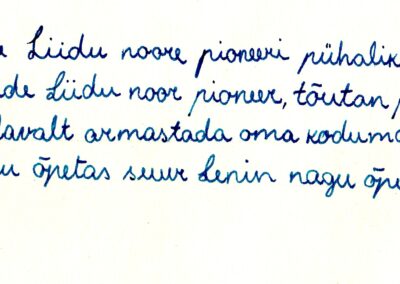 Liidu noore pioneeri pühalik
de Liidu noor pioneer, tõutan
lavalt armastada oma koduma
u õpetas suur Lenin nagu õpe